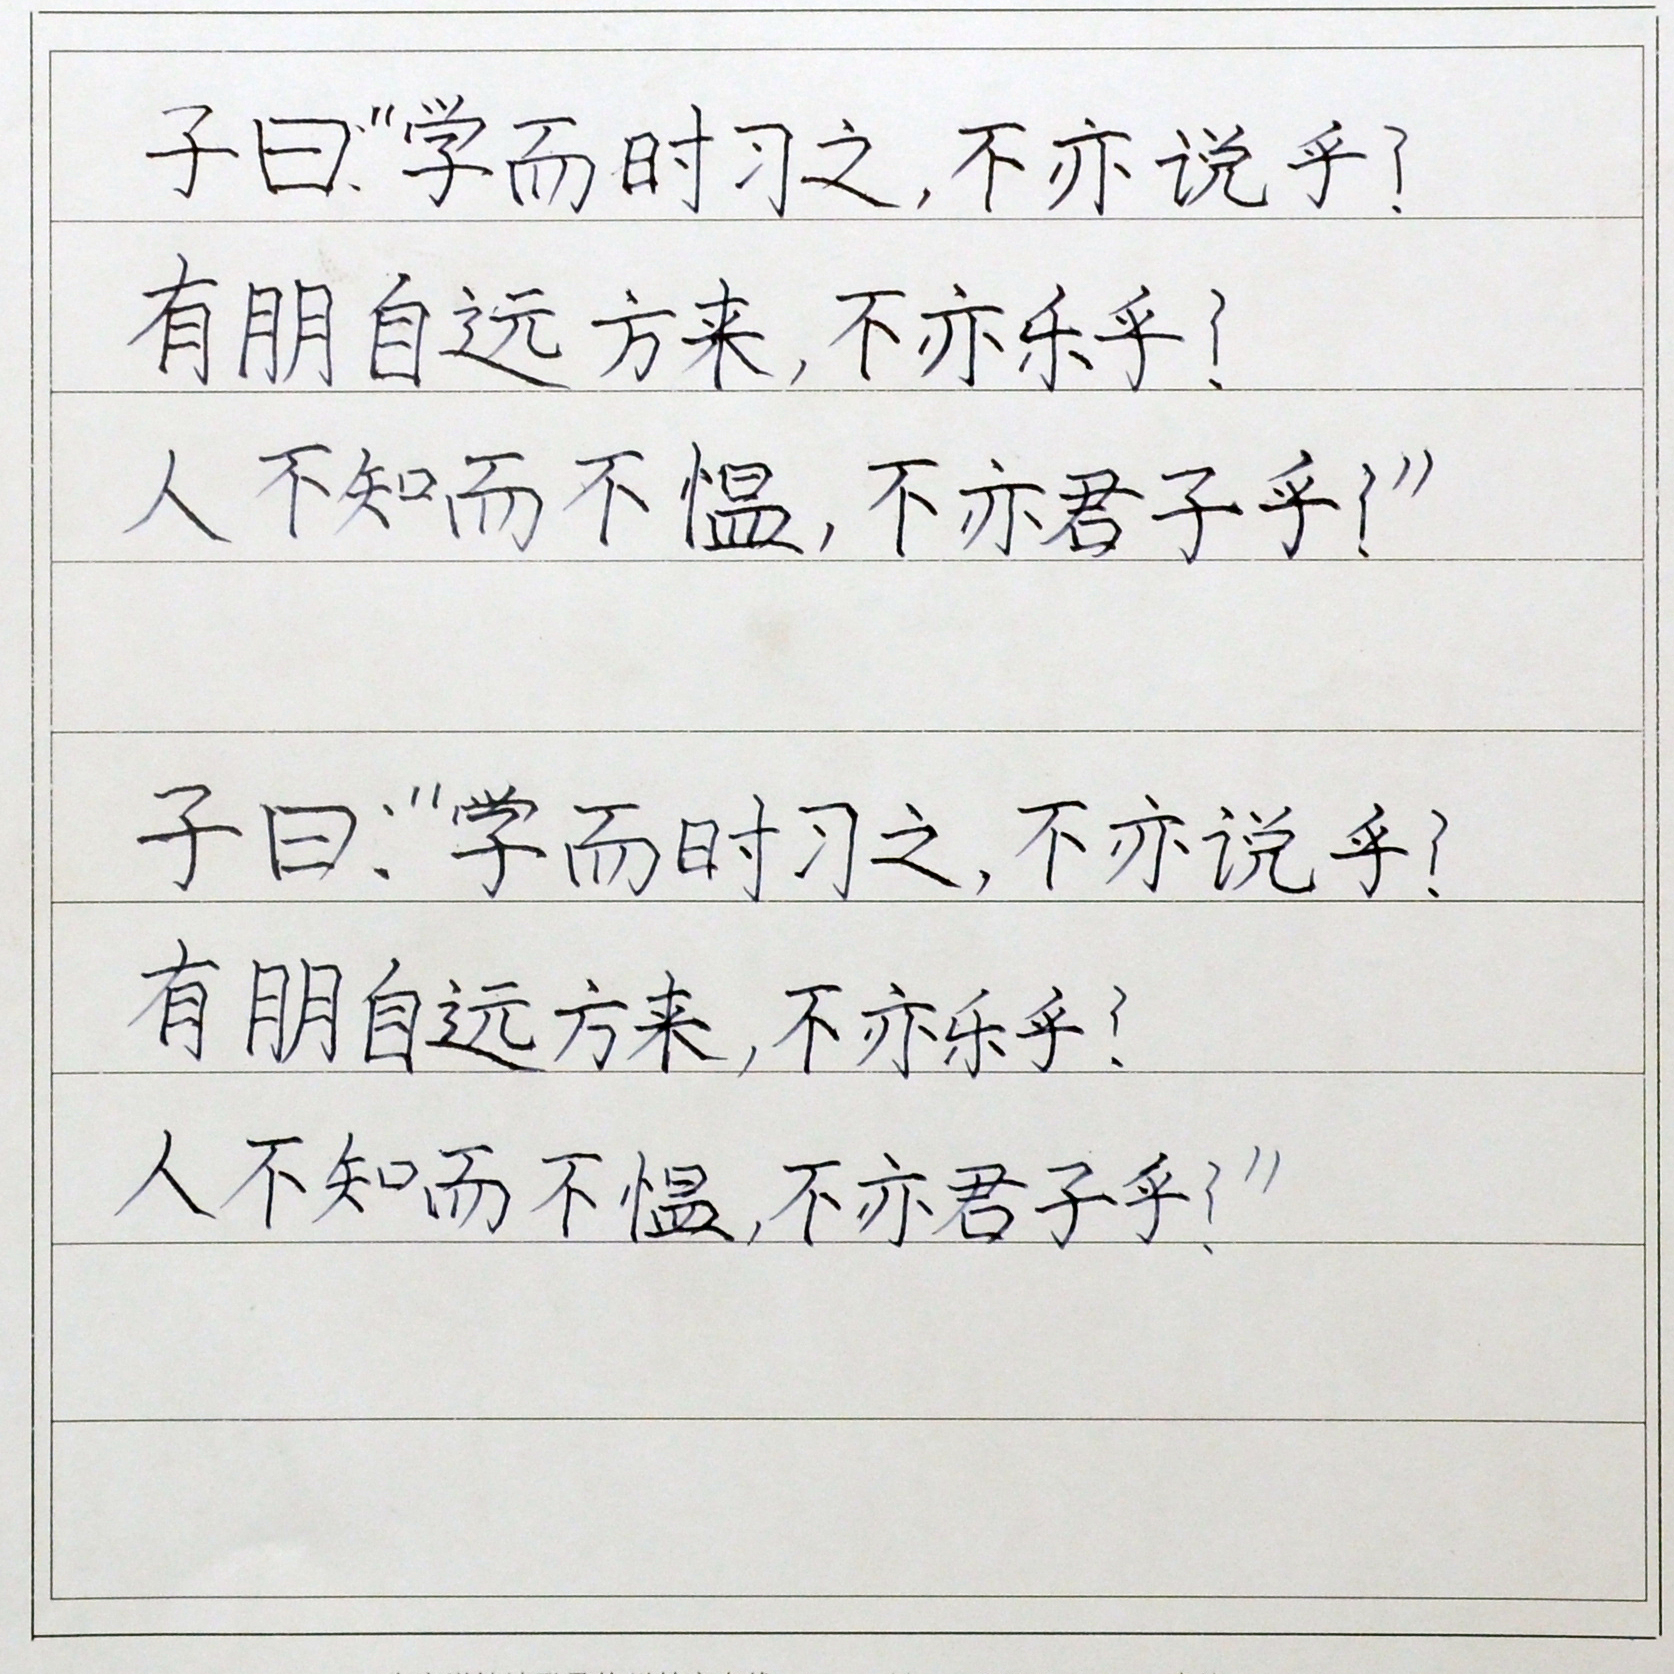 子曰:"学而时习之,不亦说乎?
有朋自远方来,不亦乐乎?
人不知而不愠,不亦君子乎?"
子曰:"学而时习之,不亦说乎?
有朋自远方来,不亦乐乎?
人不知而不愠,不亦君子乎?"